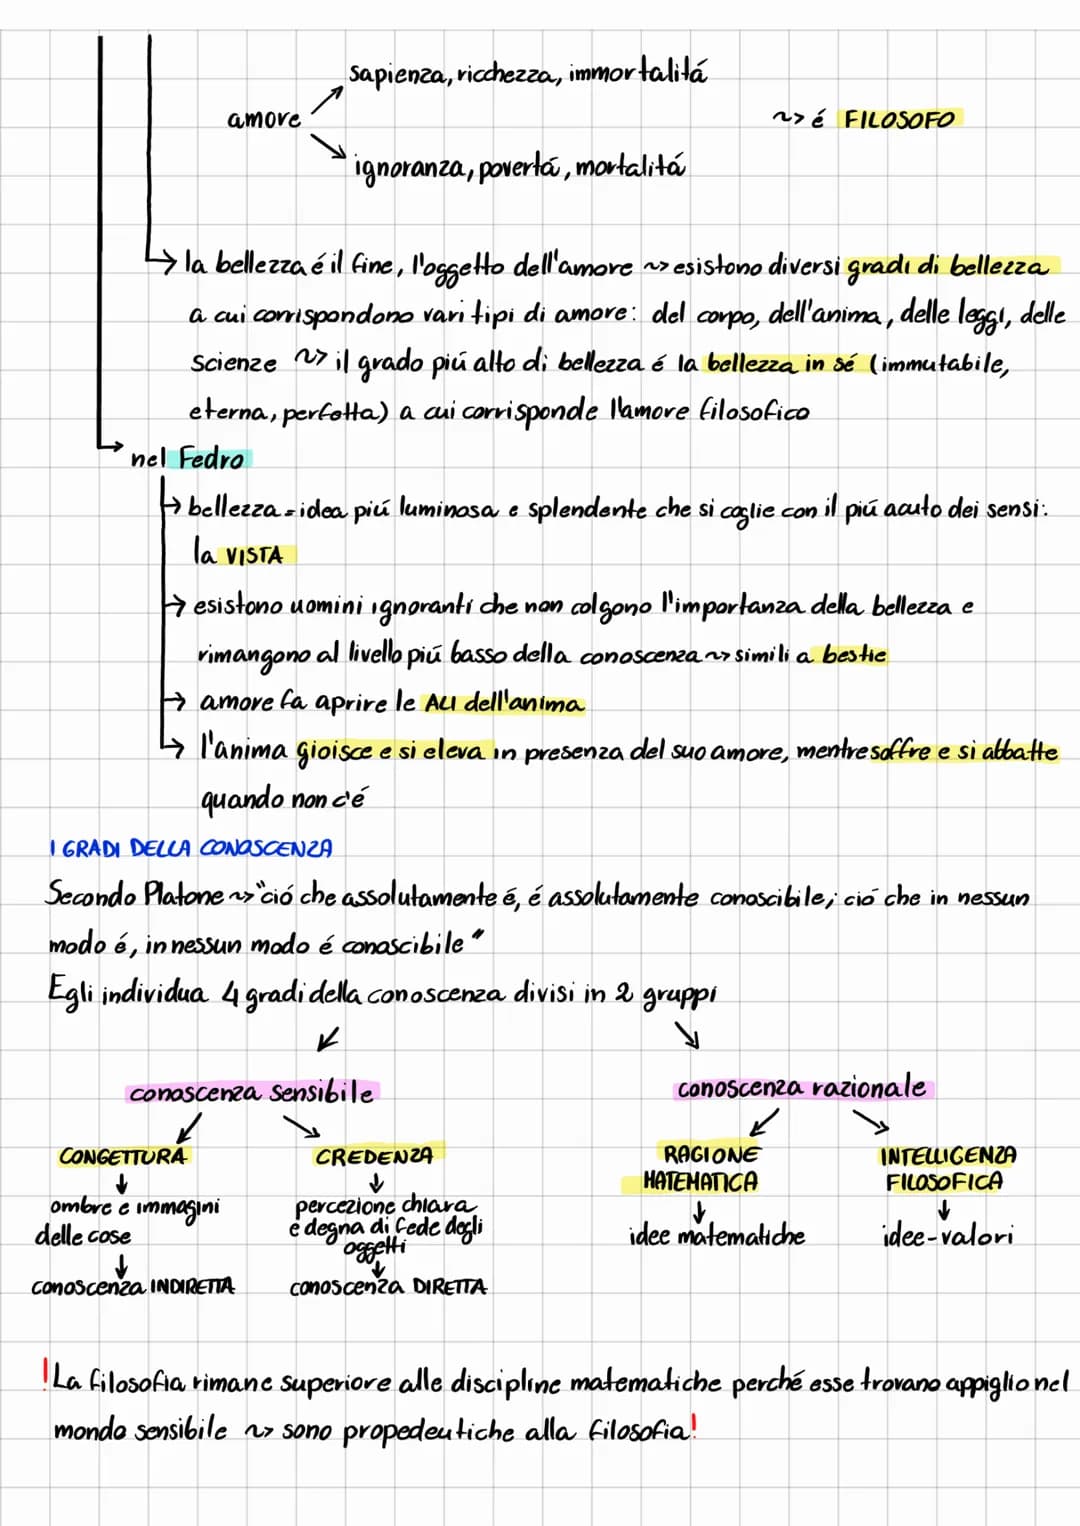 sapienza, ricchezza, immortalitá
amore
~> é FILOSOFO
ignoranza, povertá, mortalitá
la bellezza é il fine, l'oggetto dell'amore ~> esistono diversi gradi di bellezza
a cui corrispondono vari tipi di amore: del corpo, dell'anima, delle leggi, delle
scienze ~> il grado piú alto di bellezza é la bellezza in sé (immutabile,
eterna, perfetta) a cui corrisponde l'amore filosofico
nel Fedro
bellezza = idea piú luminosa e splendente che si coglie con il piú acuto dei sensi:
la VISTA
esistono uomini ignoranti che non colgono l'importanza della bellezza e
rimangono al livello piú basso della conoscenza ~> simili a bestie
amore fa aprire le ALI dell'anima
l'anima gioisce e si eleva in presenza del suo amore, mentre soffre e si abbatte
quando non c'é
I GRADI DELLA CONOSCENZA
Secondo Platone ~> "ció che assolutamente é, é assolutamente conoscibile; ció che in nessun
modo é, in nessun modo é conoscibile"
Egli individua 4 gradi della conoscenza divisi in 2 gruppi
conoscenza sensibile
conoscenza razionale
CONGETTURA
CREDENZA
RAGIONE
MATEMATICA
INTELLIGENZA
FILOSOFICA
ombre e immagini
delle cose
percezione chiara
e degna di fede degli
oggetti
idee matematiche
idee-valori
conoscenza INDIRETTA
conoscenza DIRETTA
! La filosofia rimane superiore alle discipline matematiche perché esse trovano appiglio nel
mondo sensibile ~> sono propedeutiche alla filosofia!